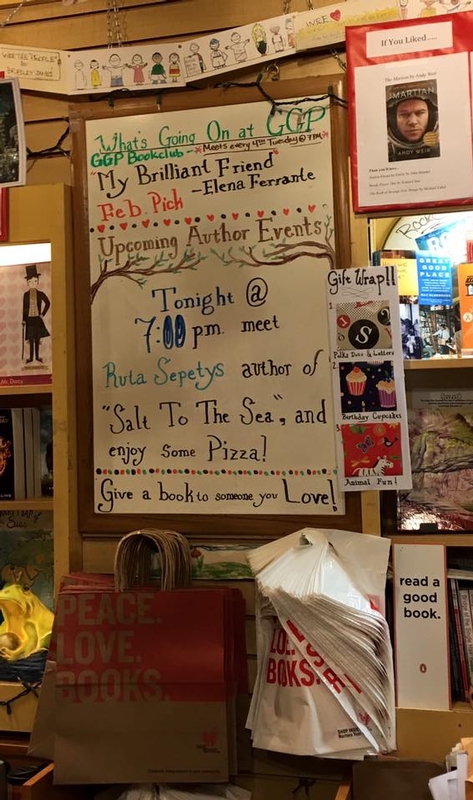 WEE THE PEOPLE"
WRE
If You Liked....
"The Martian by Andy Weir
MARTIAN
ANDY WEIR
What's Going On at GGP
GGP Bookclub - *Meets every 4th Tuesday @ 7PM*
"My Brilliant Friend"
- Elena Ferrante
Feb. Pick
Upcoming Author Events
Tonight @
7:00 p.m. meet
Ruta Sepetys author of
"Salt To The Sea", and
enjoy some Pizza!
Give a book to someone you Love!
Gift Wrap!!
1.
Polka Dots & Letters
2.
Birthday Cupcakes
3.
Animal Fun!
GREAT
GOOD
PLACE
PEACE.
LOVE.
BOOKS.
BOOKS.
read a
good
book.